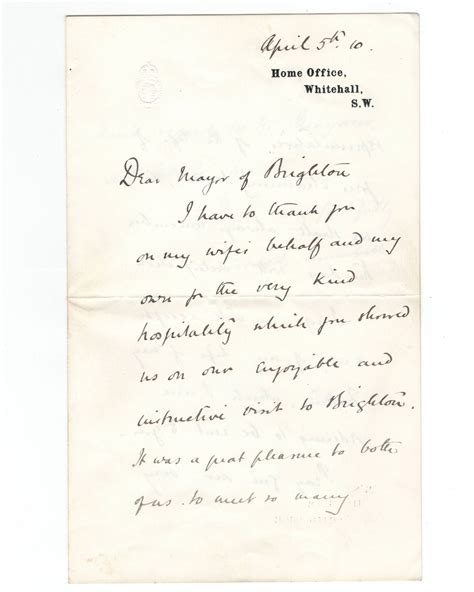 April 5th. 10.
Home Office,
Whitehall,
S.W.
Dear Mayor of Brighton
I have to thank you
on my wife's behalf and my
own for the very kind
hospitality which you showed
us on our enjoyable and
instructive visit to Brighton.
It was a great pleasure to both
of us to meet so many